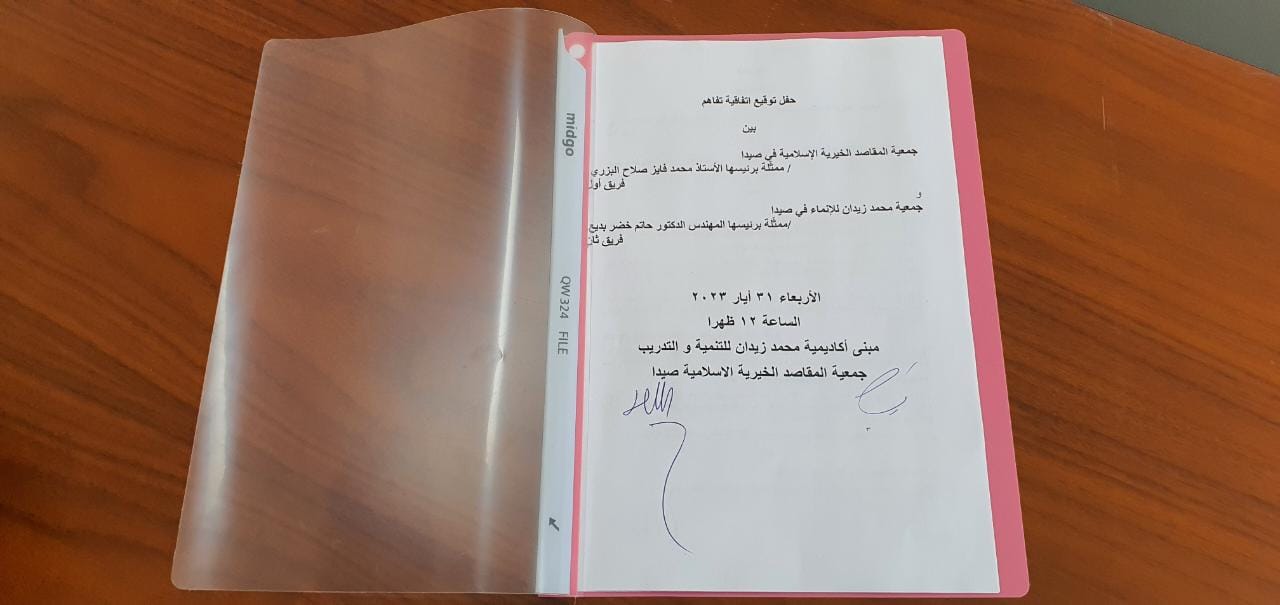 حفل توقيع اتفاقية تفاهم
بين
جمعية المقاصد الخيرية الإسلامية في صيدا
/ ممثلة برئيسها الأستاذ محمد فايز صلاح البزري
فريق أول
و
جمعية محمد زيدان للإنماء في صيدا
/ممثلة برئيسها المهندس الدكتور حاتم خضر بديع
فريق ثان
الأربعاء ٣١ أيار ٢٠٢٣
الساعة ١٢ ظهرا
مبنى أكاديمية محمد زيدان للتنمية و التدريب
جمعية المقاصد الخيرية الاسلامية صيدا
midgo
QW 324 FILE